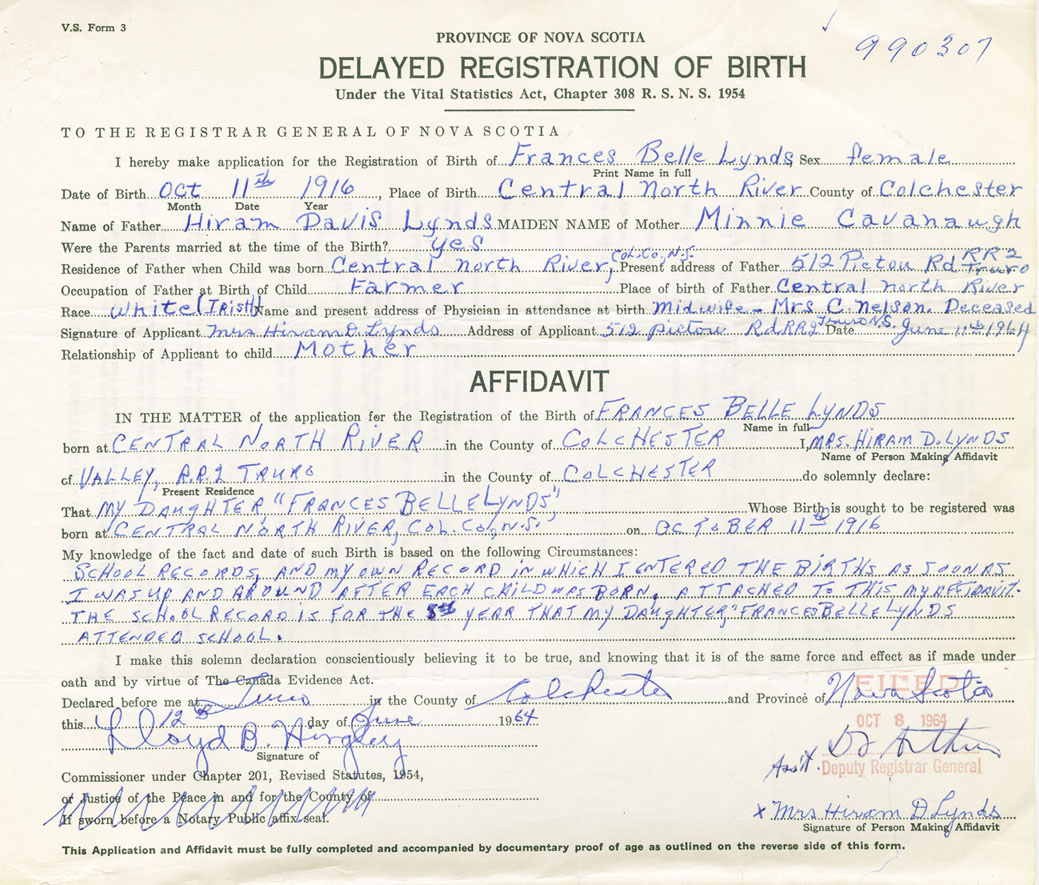 V.S. Form 3
990307
PROVINCE OF NOVA SCOTIA
DELAYED REGISTRATION OF BIRTH
Under the Vital Statistics Act, Chapter 308 R. S. N. S. 1954
TO THE REGISTRAR GENERAL OF NOVA SCOTIA
I hereby make application for the Registration of Birth of Frances Belle Lynds Sex female
Print Name in full
Date of Birth Oct 11th 1916, Place of Birth Central North River County of Colchester
Month Date Year
Name of Father Hiram Davis Lynds MAIDEN NAME of Mother Minnie Cavanaugh
Were the Parents married at the time of the Birth? yes
Residence of Father when Child was born Central North River, Col. Co., N.S. Present address of Father 512 Pictou Rd RR2 Truro
Occupation of Father at Birth of Child Farmer Place of birth of Father Central North River
Race White (Irish) Name and present address of Physician in attendance at birth Midwife - Mrs C. Nelson. Deceased
Signature of Applicant Mrs Hiram D. Lynds Address of Applicant 512 Pictou Rd RR2 Truro N.S. Date June 11th 1964
Relationship of Applicant to child Mother
AFFIDAVIT
IN THE MATTER of the application for the Registration of the Birth of FRANCES BELLE LYNDS
Name in full
born at CENTRAL NORTH RIVER in the County of COLCHESTER I, MRS. HIRAM D. LYNDS
Name of Person Making Affidavit
of VALLEY, R.R.2 TRURO in the County of COLCHESTER do solemnly declare:
Present Residence
That MY DAUGHTER "FRANCES BELLE LYNDS," Whose Birth is sought to be registered was
born at CENTRAL NORTH RIVER, COL. CO., N.S. on OCTOBER 11th 1916
My knowledge of the fact and date of such Birth is based on the following Circumstances:
SCHOOL RECORDS, AND MY OWN RECORD IN WHICH I ENTERED THE BIRTHS AS SOON AS
I WAS UP AND AROUND AFTER EACH CHILD WAS BORN, ATTACHED TO THIS MY AFFIDAVIT.
THE SCHOOL RECORD IS FOR THE 5th YEAR THAT MY DAUGHTER, "FRANCES BELLE LYNDS
ATTENDED SCHOOL.
I make this solemn declaration conscientiously believing it to be true, and knowing that it is of the same force and effect as if made under
oath and by virtue of The Canada Evidence Act.
Declared before me at Truro in the County of Colchester and Province of Nova Scotia
FILED
this 12th day of June 1964
OCT 8 1964
Lloyd B. Hingley
Signature of
Ass't. Deputy Registrar General
Commissioner under Chapter 201, Revised Statutes, 1954,
or Justice of the Peace in and for the County of
If sworn before a Notary Public affix seal.
x Mrs Hiram D Lynds
Signature of Person Making Affidavit
This Application and Affidavit must be fully completed and accompanied by documentary proof of age as outlined on the reverse side of this form.